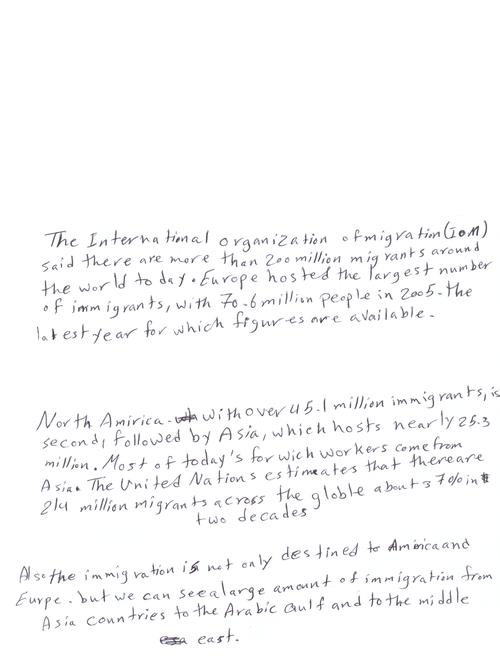 The International organization of migration (IOM)
said there are more than 200 million migrants around
the world to day. Europe hosted the largest number
of immigrants, with 70.6 million people in 2005. the
latest year for which figures are available.
North Amirica. with over 45.1 million immigrants, is
second, followed by Asia, which hosts nearly 25.3
million. Most of today's for wich workers come from
Asia. The United Nations estimeates that there are
214 million migrants across the globle about 37% in
two decades
Also the immigration is not only destined to America and
Eurpe. but we can see a large amount of immigration from
Asia countries to the Arabic Gulf and to the middle
east.